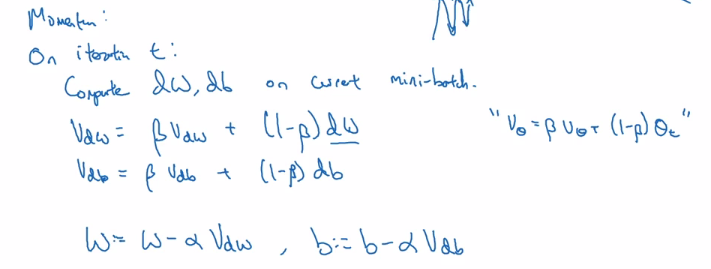 Momentum:
On iteration t:
Compute dW, db on current mini-batch.
Vdw = β Vdw + (1-β) dW
"Vθ = β Vθ + (1-β) θt"
Vdb = β Vdb + (1-β) db
W := W - α Vdw , b := b - α Vdb